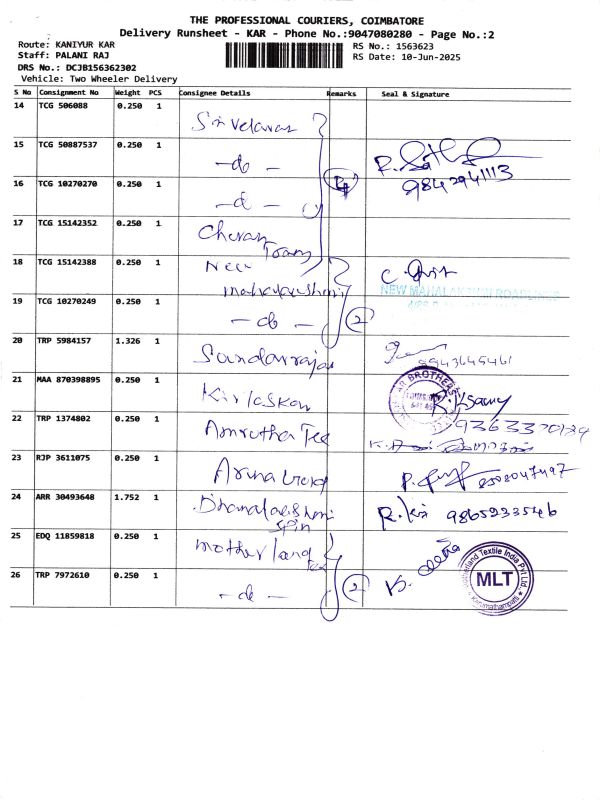 THE PROFESSIONAL COURIERS, COIMBATORE
Delivery Runsheet - KAR - Phone No.:9047080280 - Page No.:2
Route: KANIYUR KAR
RS No.: 1563623
Staff: PALANI RAJ
RS Date: 10-Jun-2025
DRS No.: DCJB156362302
Vehicle: Two Wheeler Delivery
S No Consignment No Weight PCS Consignee Details Remarks Seal & Signature
14 TCG 506088 0.250 1
Sri Velavan
15 TCG 50887537 0.250 1
- do -
9842941113
16 TCG 10270270 0.250 1
- d -
17 TCG 15142352 0.250 1
Cheran Trans
18 TCG 15142388 0.250 1
New mahalakshmi
NEW MAHALAKSHMI ROADLINES
19 TCG 10270249 0.250 1
- do -
2
20 TRP 5984157 1.326 1
Sundarrajan
21 MAA 870398895 0.250 1
Kirloskar
BROTHERS
22 TRP 1374802 0.250 1
Amrutha Tex
23 RJP 3611075 0.250 1
24 ARR 30493648 1.752 1
Dhanalakshmi Spin
9865233546
25 EDQ 11859818 0.250 1
mother land Tex
Motherland Textile India Pvt Ltd.
MLT
Karumathampatti
26 TRP 7972610 0.250 1
- do -
2